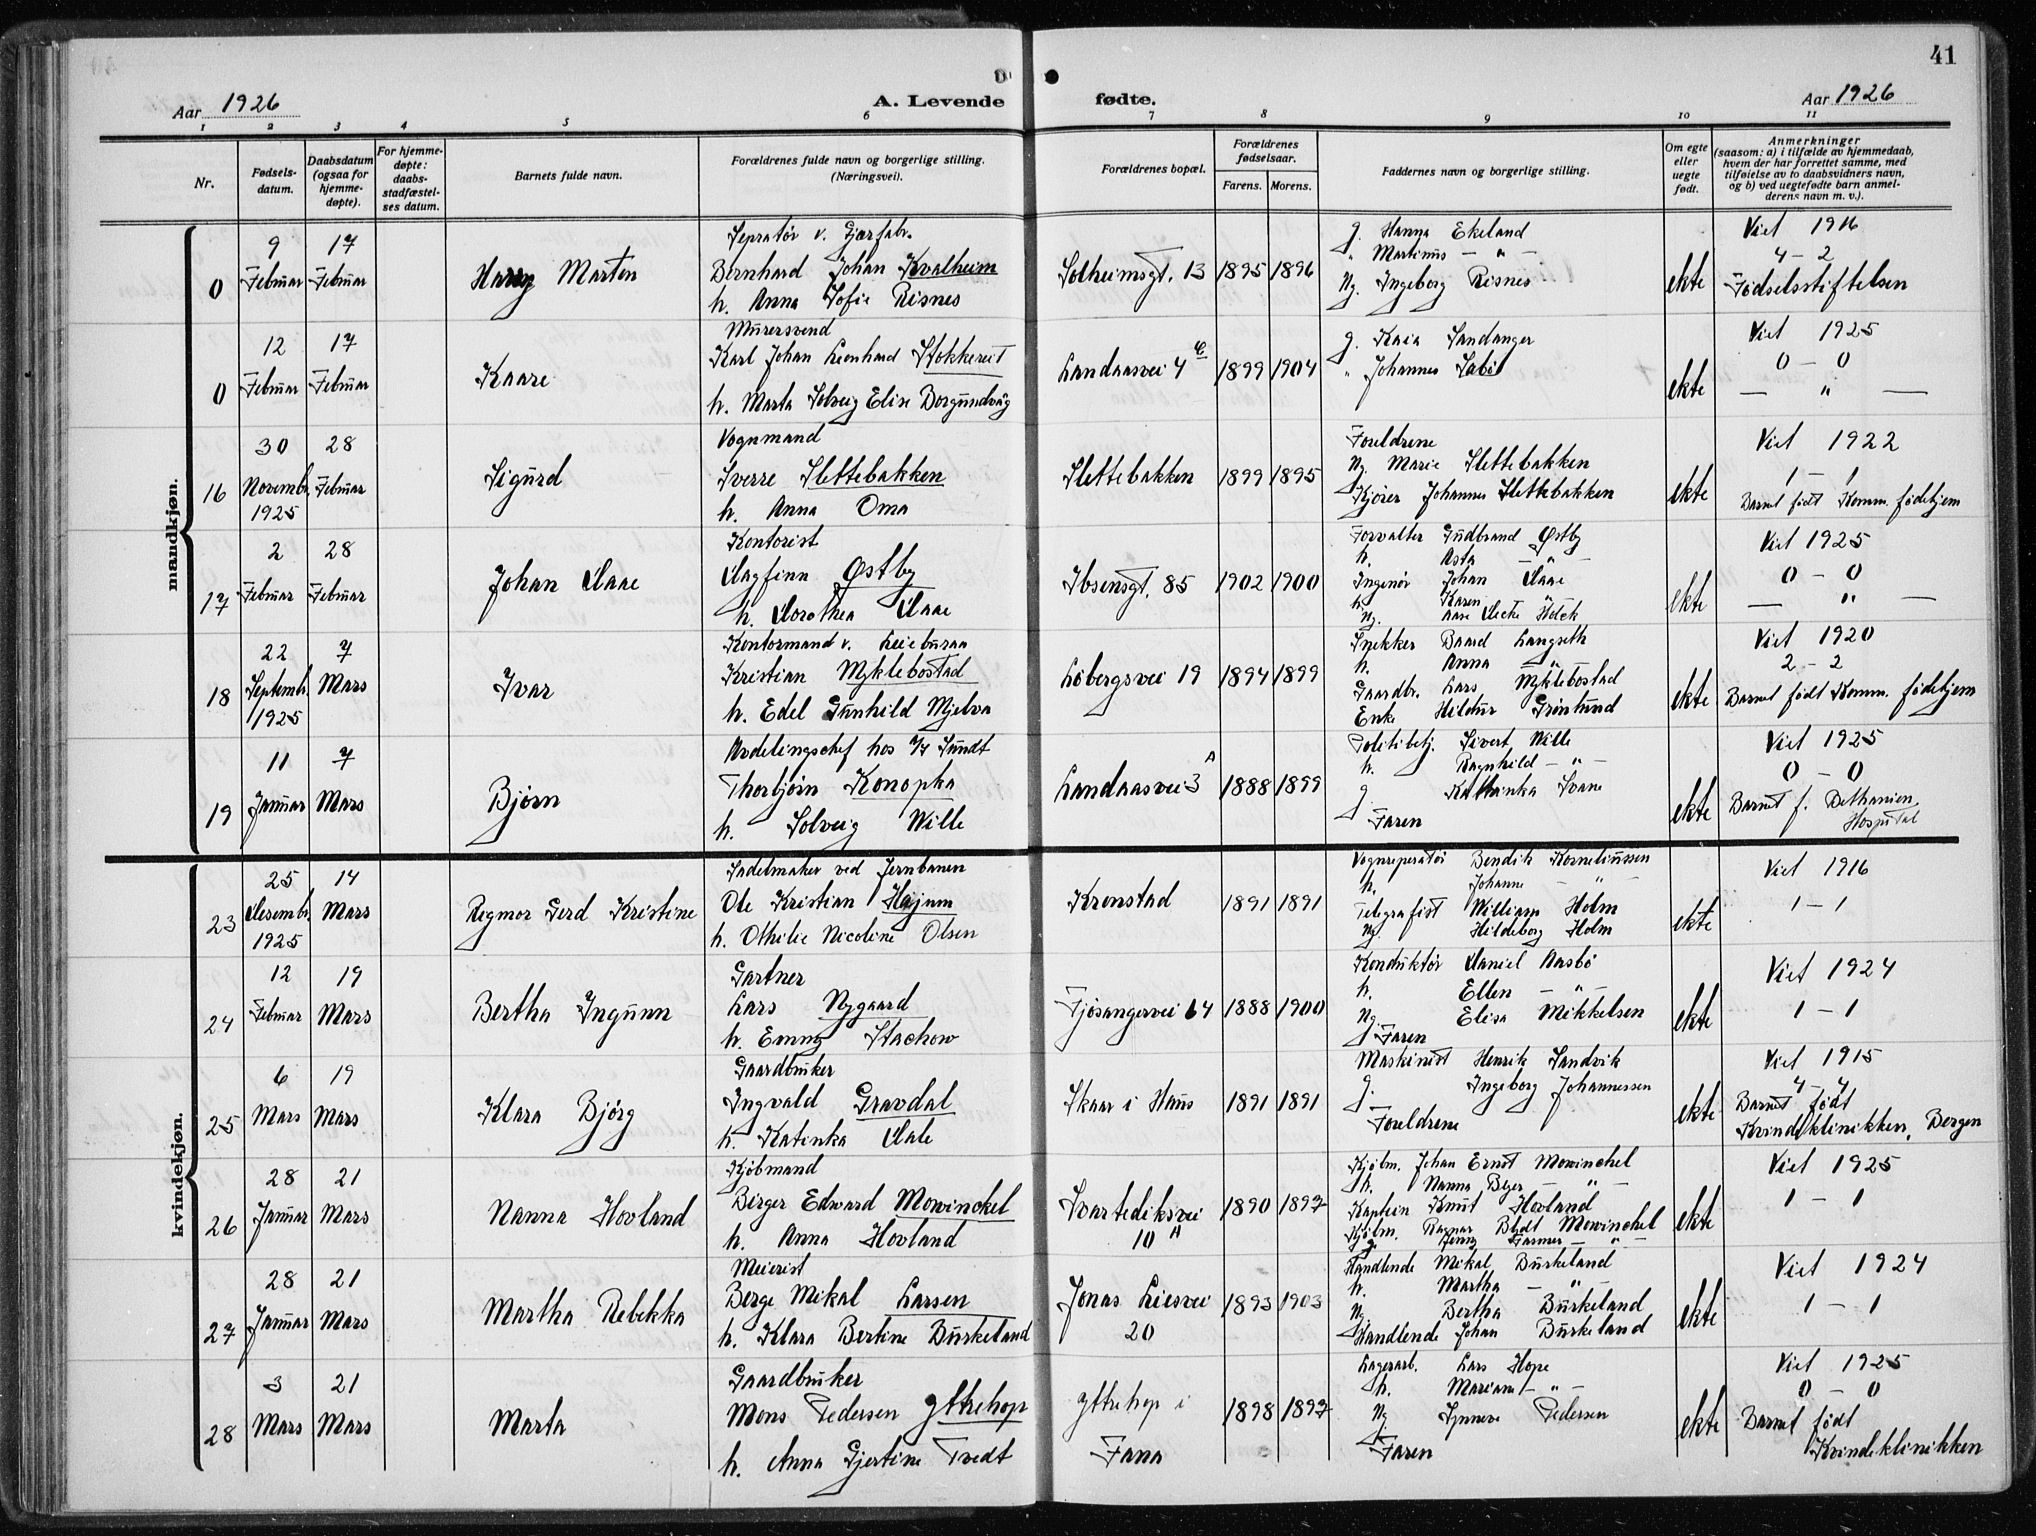 41
Aar 1926
A. Levende fødte.
Aar 1926
1 2 3 4 5 6 7 8 9 10 11
Nr.
Fødsels-
datum.
Daabsdatum
(ogsaa for
hjemme-
døpte).
For hjemme-
døpte:
daabs-
stadfæstel-
ses datum.
Barnets fulde navn.
Forældrenes fulde navn og borgerlige stilling.
(Næringsvei).
Forældrenes bopæl.
Forældrenes
fødselsaar.
Farens. Morens.
Faddernes navn og borgerlige stilling.
Om egte
eller
uegte
født.
Anmerkninger
(saasom: a) i tilfælde av hjemmedaab,
hvem der har forrettet samme, med
tilføielse av to daabsvidners navn,
og b) ved uegtefødte barn anmel-
derens navn m. v.).
mandkjøn.
0
9
Februar
17
Februar
Harry Marton
Sepratør v. Gjærfabr.
Bernhard Johan Kvalheim
h. Anna Sofie Risnes
Solheimsgt. 13
1895 1896
g. Hanna Ekeland
" Martinus — " —
Ng. Ingeborg Risnes
ekte
Viet 1916
4 – 2
Fødselsstiftelsen
0
12
Februar
17
Februar
Kaare
Murersvend
Karl Johan Leonhard Stokkereit
h. Marta Solveig Elise Borgundvåg
Landaasvei 4
1899 1904
g. Kaia Sandanger
" Johannes Sæbø
ekte
Viet 1925
0 – 0
— " —
16
30
Novembr.
1925
28
Februar
Sigurd
Vognmand
Sverre Slettebakken
h. Anna Oma
Slettebakken
1899 1895
Foreldrene
Ng. Marie Slettebakken
Kjører Johannes Slettebakken
ekte
Viet 1922
1 – 1
Barnet født Komm. fødehjem
17
2
Februar
28
Februar
Johan Daae
Kontorist
Dagfinn Østby
h. Dorothea Daae
Ibsensgt. 85
1902 1900
Forvalter Gudbrand Østby
h. Asta — " —
Ingenør Johan Daae
h. Karen "
Ng. Aase Holck
ekte
Viet 1925
0 – 0
— " —
18
22
Septembr.
1925
7
Mars
Ivar
Kontormand v. Leieburaa
Kristian Myklebostad
h. Edel Gunhild Mjelva
Løbergsvei 19
1894 1899
Snekker Baard Langseth
h. Anna — " —
Gaardbr. Lars Myklebostad
Enke Hildur Grønlund
ekte
Viet 1920
2 – 2
Barnet født Komm. fødehjem
19
11
Januar
7
Mars
Bjørn
Avdelingschef hos A/S Sundt
Thorbjørn Konopka
h. Solveig Wille
Landaasvei 3 A
1888 1899
Politibetj. Sivert Wille
h. Ragnhild — " —
g. Kathinka Svane
Faren
ekte
Viet 1925
0 – 0
Barnet f. Bethanien
Hospital
kvindekjøn.
23
25
Desembr.
1925
14
Mars
Rigmor Gerd Kristine
Sadelmaker ved Jernbanen
Ole Kristian Hajum
h. Othilie Nicoline Olsen
Kronstad
1891 1891
Vognreperatør Bendik Korneliussen
h. Johanne — " —
Telegrafist William Holm
Ng. Hildeborg Holm
ekte
Viet 1916
1 – 1
24
12
Februar
19
Mars
Bertha Ingunn
Gartner
Lars Nygaard
h. Emmy Stachow
Fjøsangervei 64
1888 1900
Konduktør Daniel Aasbø
h. Ellen — " —
Ng. Elisa Mikkelsen
Faren
ekte
Viet 1924
1 – 1
25
6
Mars
19
Mars
Klara Bjørg
Gaardbruker
Ingvald Gravdal
h. Katinka Dale
Skaar i Haus
1891 1891
Maskinist Henrik Sandvik
g. Ingeborg Johannessen
Foreldrene
ekte
Viet 1915
4 – 4
Barnet født
Kvindeklinikken, Bergen
26
28
Januar
21
Mars
Nanna Hovland
Kjøbmand
Birger Edward Mowinckel
h. Anna Hovland
Svartediksvei
10 A
1890 1897
Kjøbm. Johan Ernst Mowinckel
h. Nanna Beyer — " —
Kaptein Knut Hovland
Kjøbm. Ragnar Blydt Mowinckel
Jenny Farmer — " —
ekte
Viet 1925
1 – 1
27
28
Januar
21
Mars
Martha Rebekka
Meierist
Berge Mikal Larsen
h. Klara Bertine Burkeland
Jonas Liesvei
20
1893 1903
Handlende Mikal Burkeland
h. Martha — " —
Ng. Bertha Burkeland
Handlende Johan Burkeland
ekte
Viet 1924
1 – 1
28
3
Mars
21
Mars
Marta
Gaardbruker
Mons Pedersen Yttrehop
h. Anna Gjertine Tvedt
Yttrehop i
Fana
1898 1897
Lagerarb. Lars Hope
h. Mariane — " —
Ng. Synneve Pedersen
Faren
ekte
Viet 1925
0 – 0
Barnet født
Kvindeklinikken